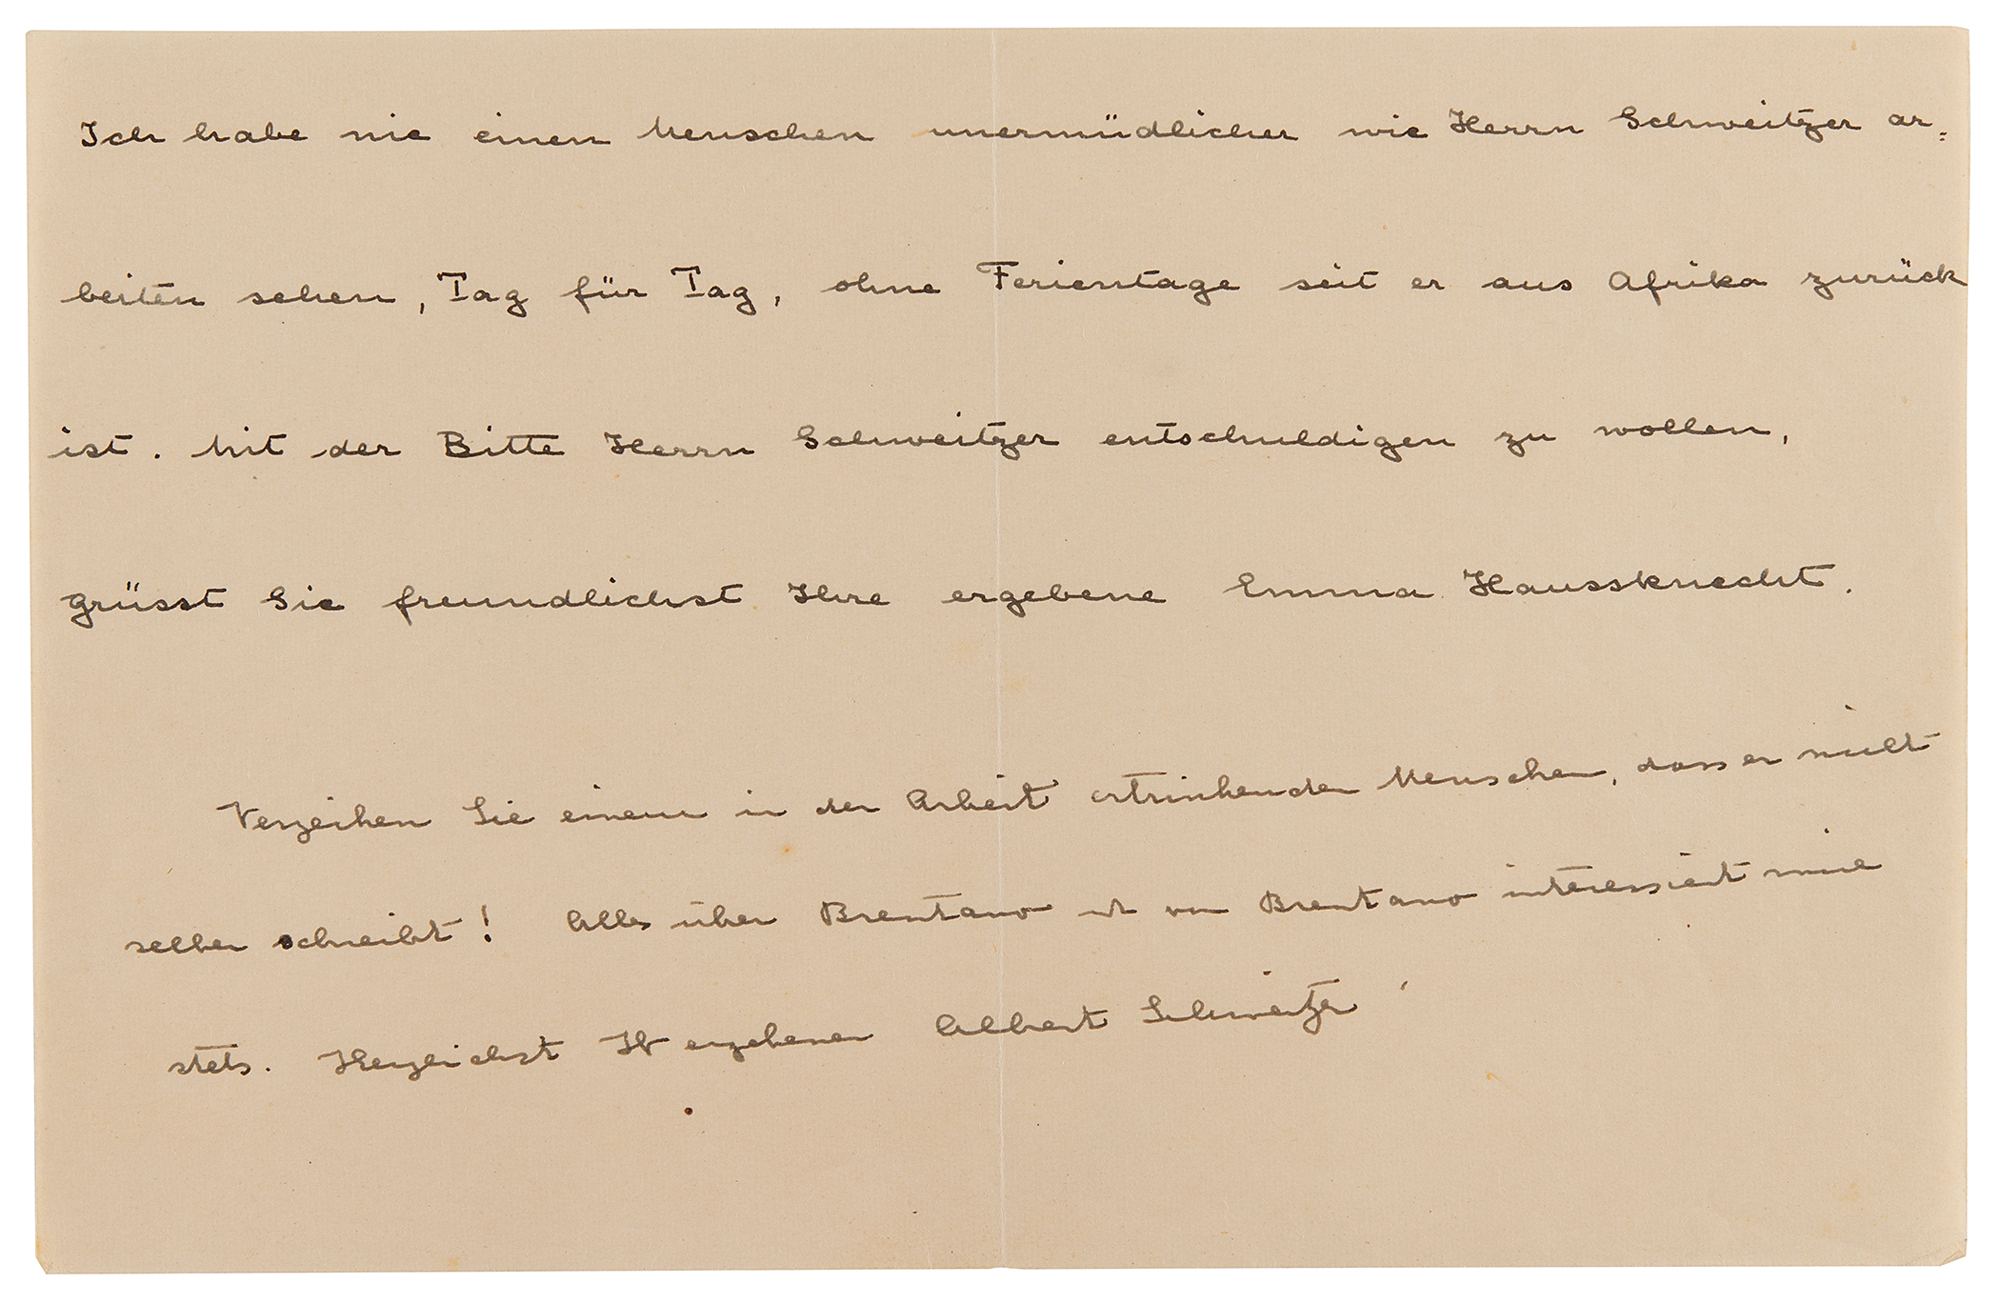 Ich habe nie einen Menschen unermüdlicher wie Herrn Schweitzer ar=
beiten sehen, Tag für Tag, ohne Ferientage seit er aus Afrika zurück
ist. Mit der Bitte Herrn Schweitzer entschuldigen zu wollen,
grüsst Sie freundlichst Ihre ergebene Emma Haussknecht.
Verzeihen Sie einem in der Arbeit ertrinkenden Menschen, dass er nicht
selber schreibt! Alles über Brentano u von Brentano interessiert mich
stets. Herzlichst Ihr ergebener Albert Schweitzer